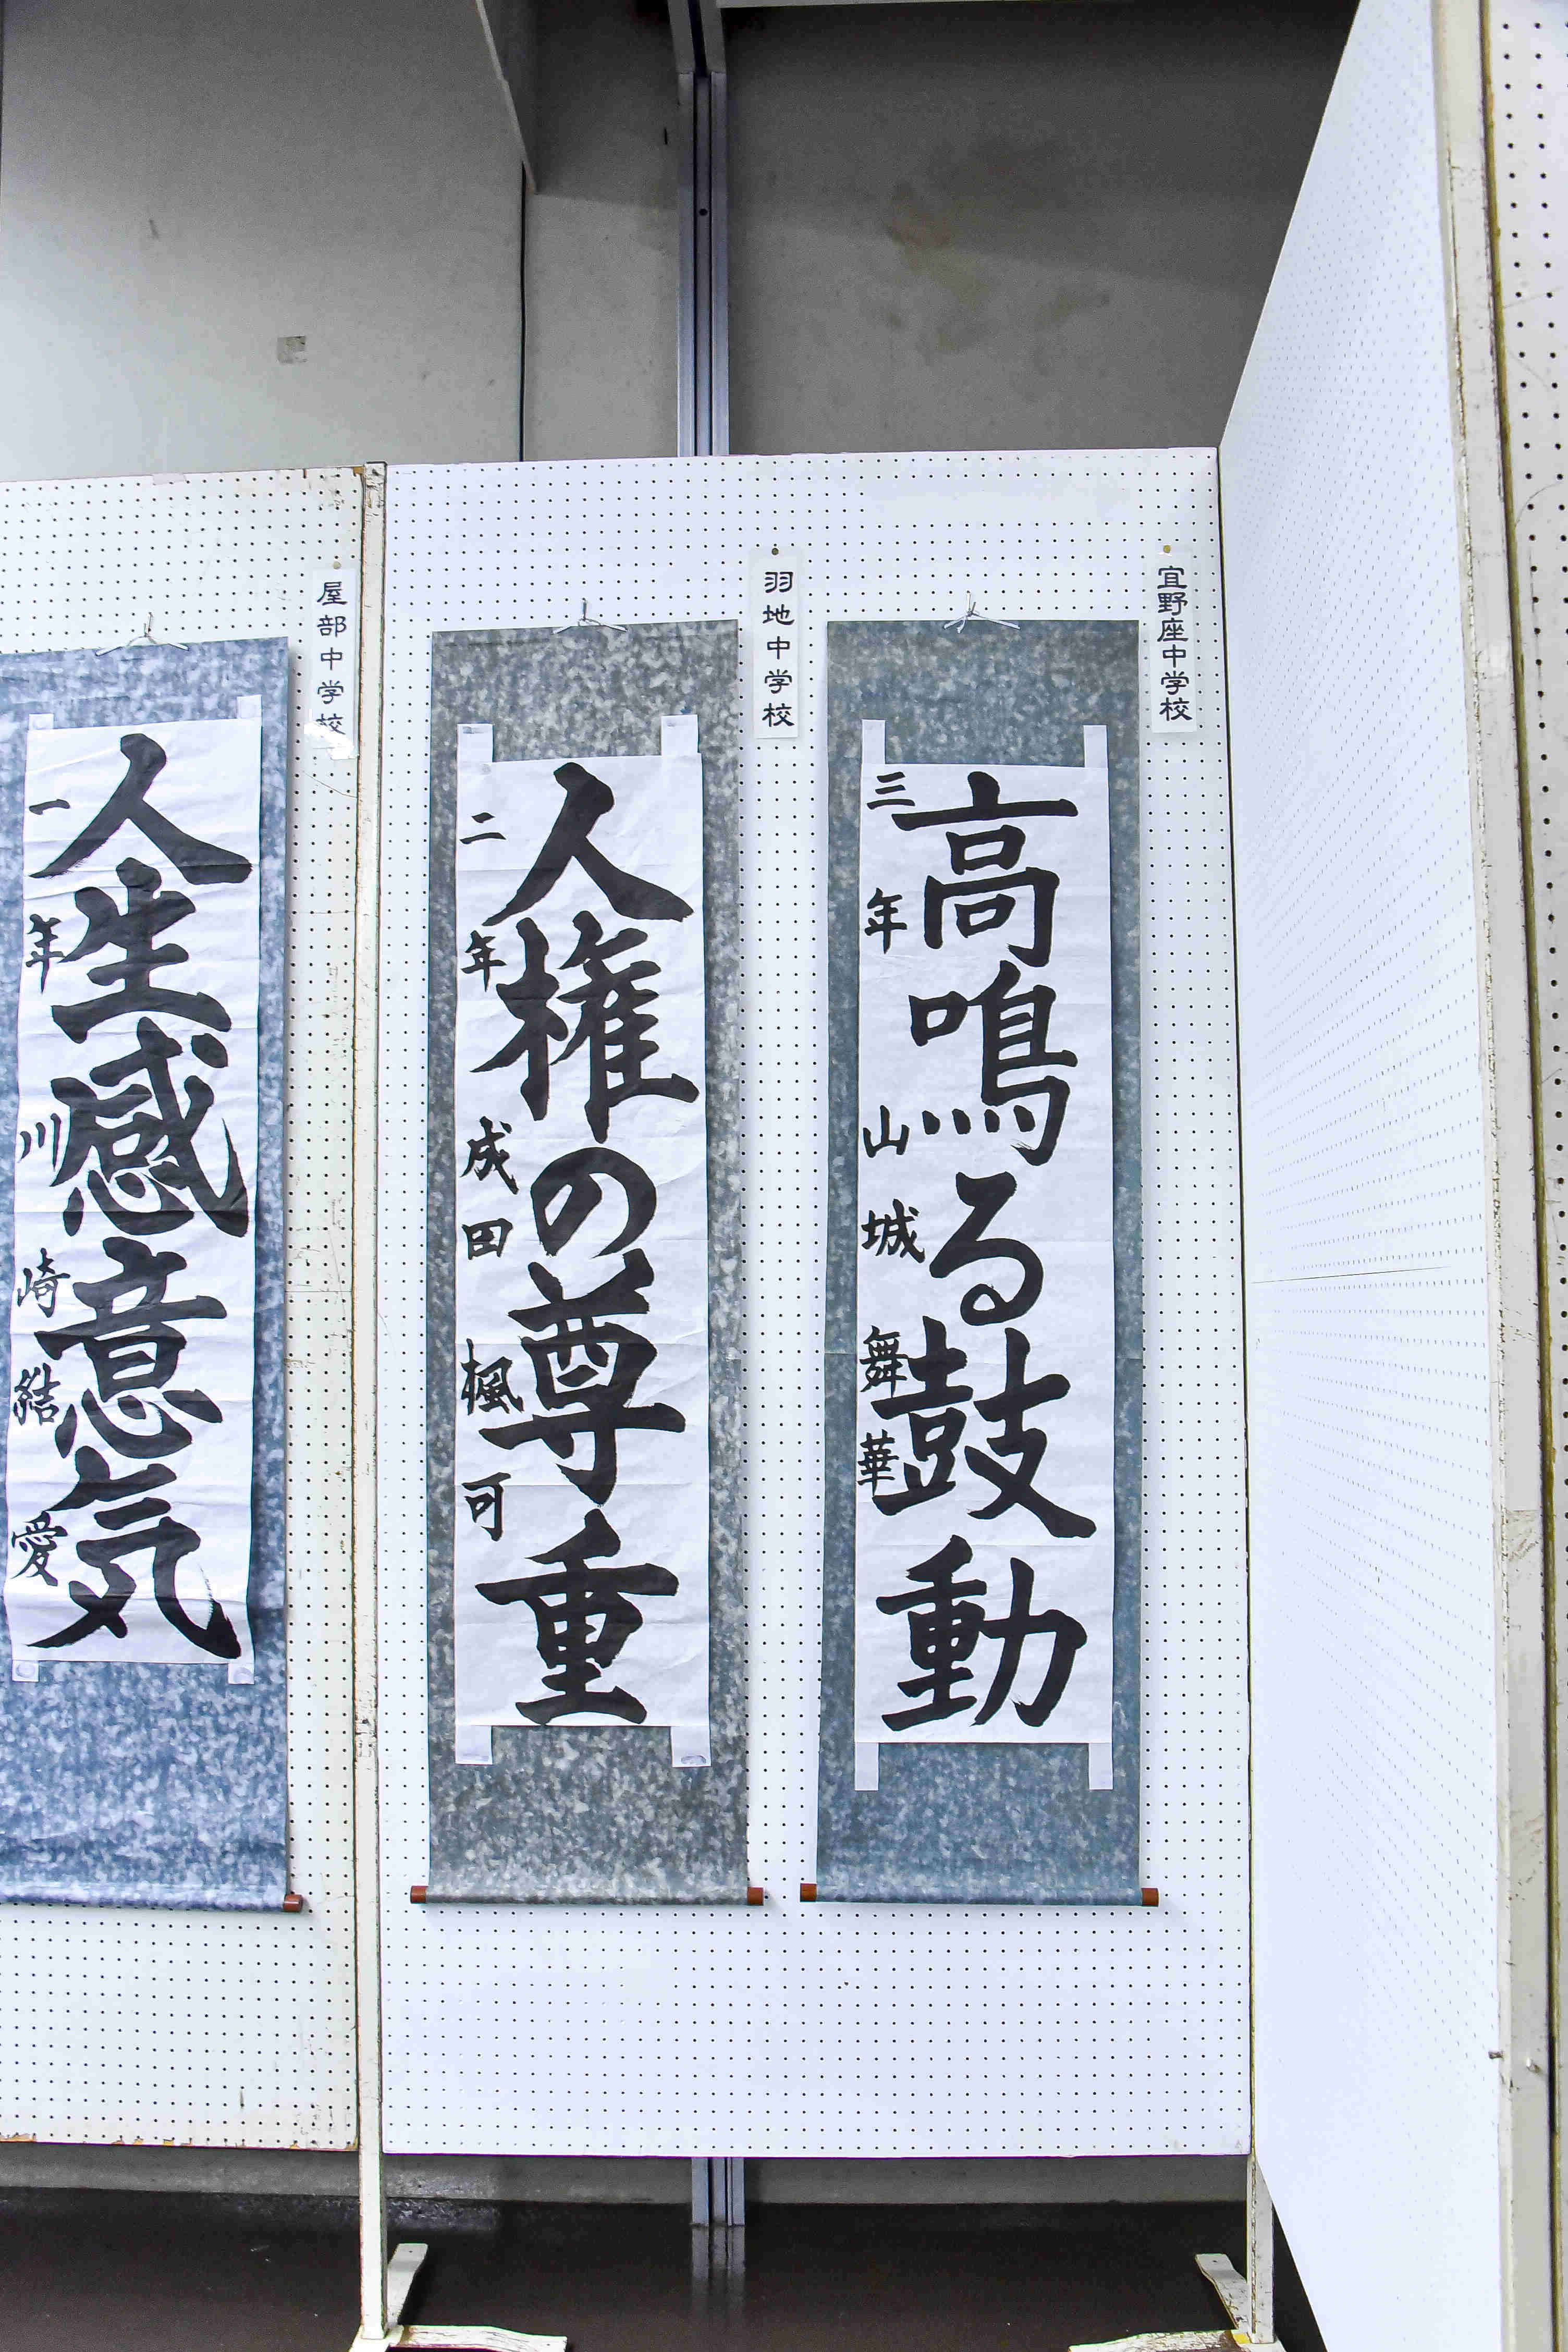 宜野座中学校
高鳴る鼓動
三年 山城舞華
羽地中学校
人権の尊重
二年 成田楓可
屋部中学校
人生感意気
一年 川崎結愛